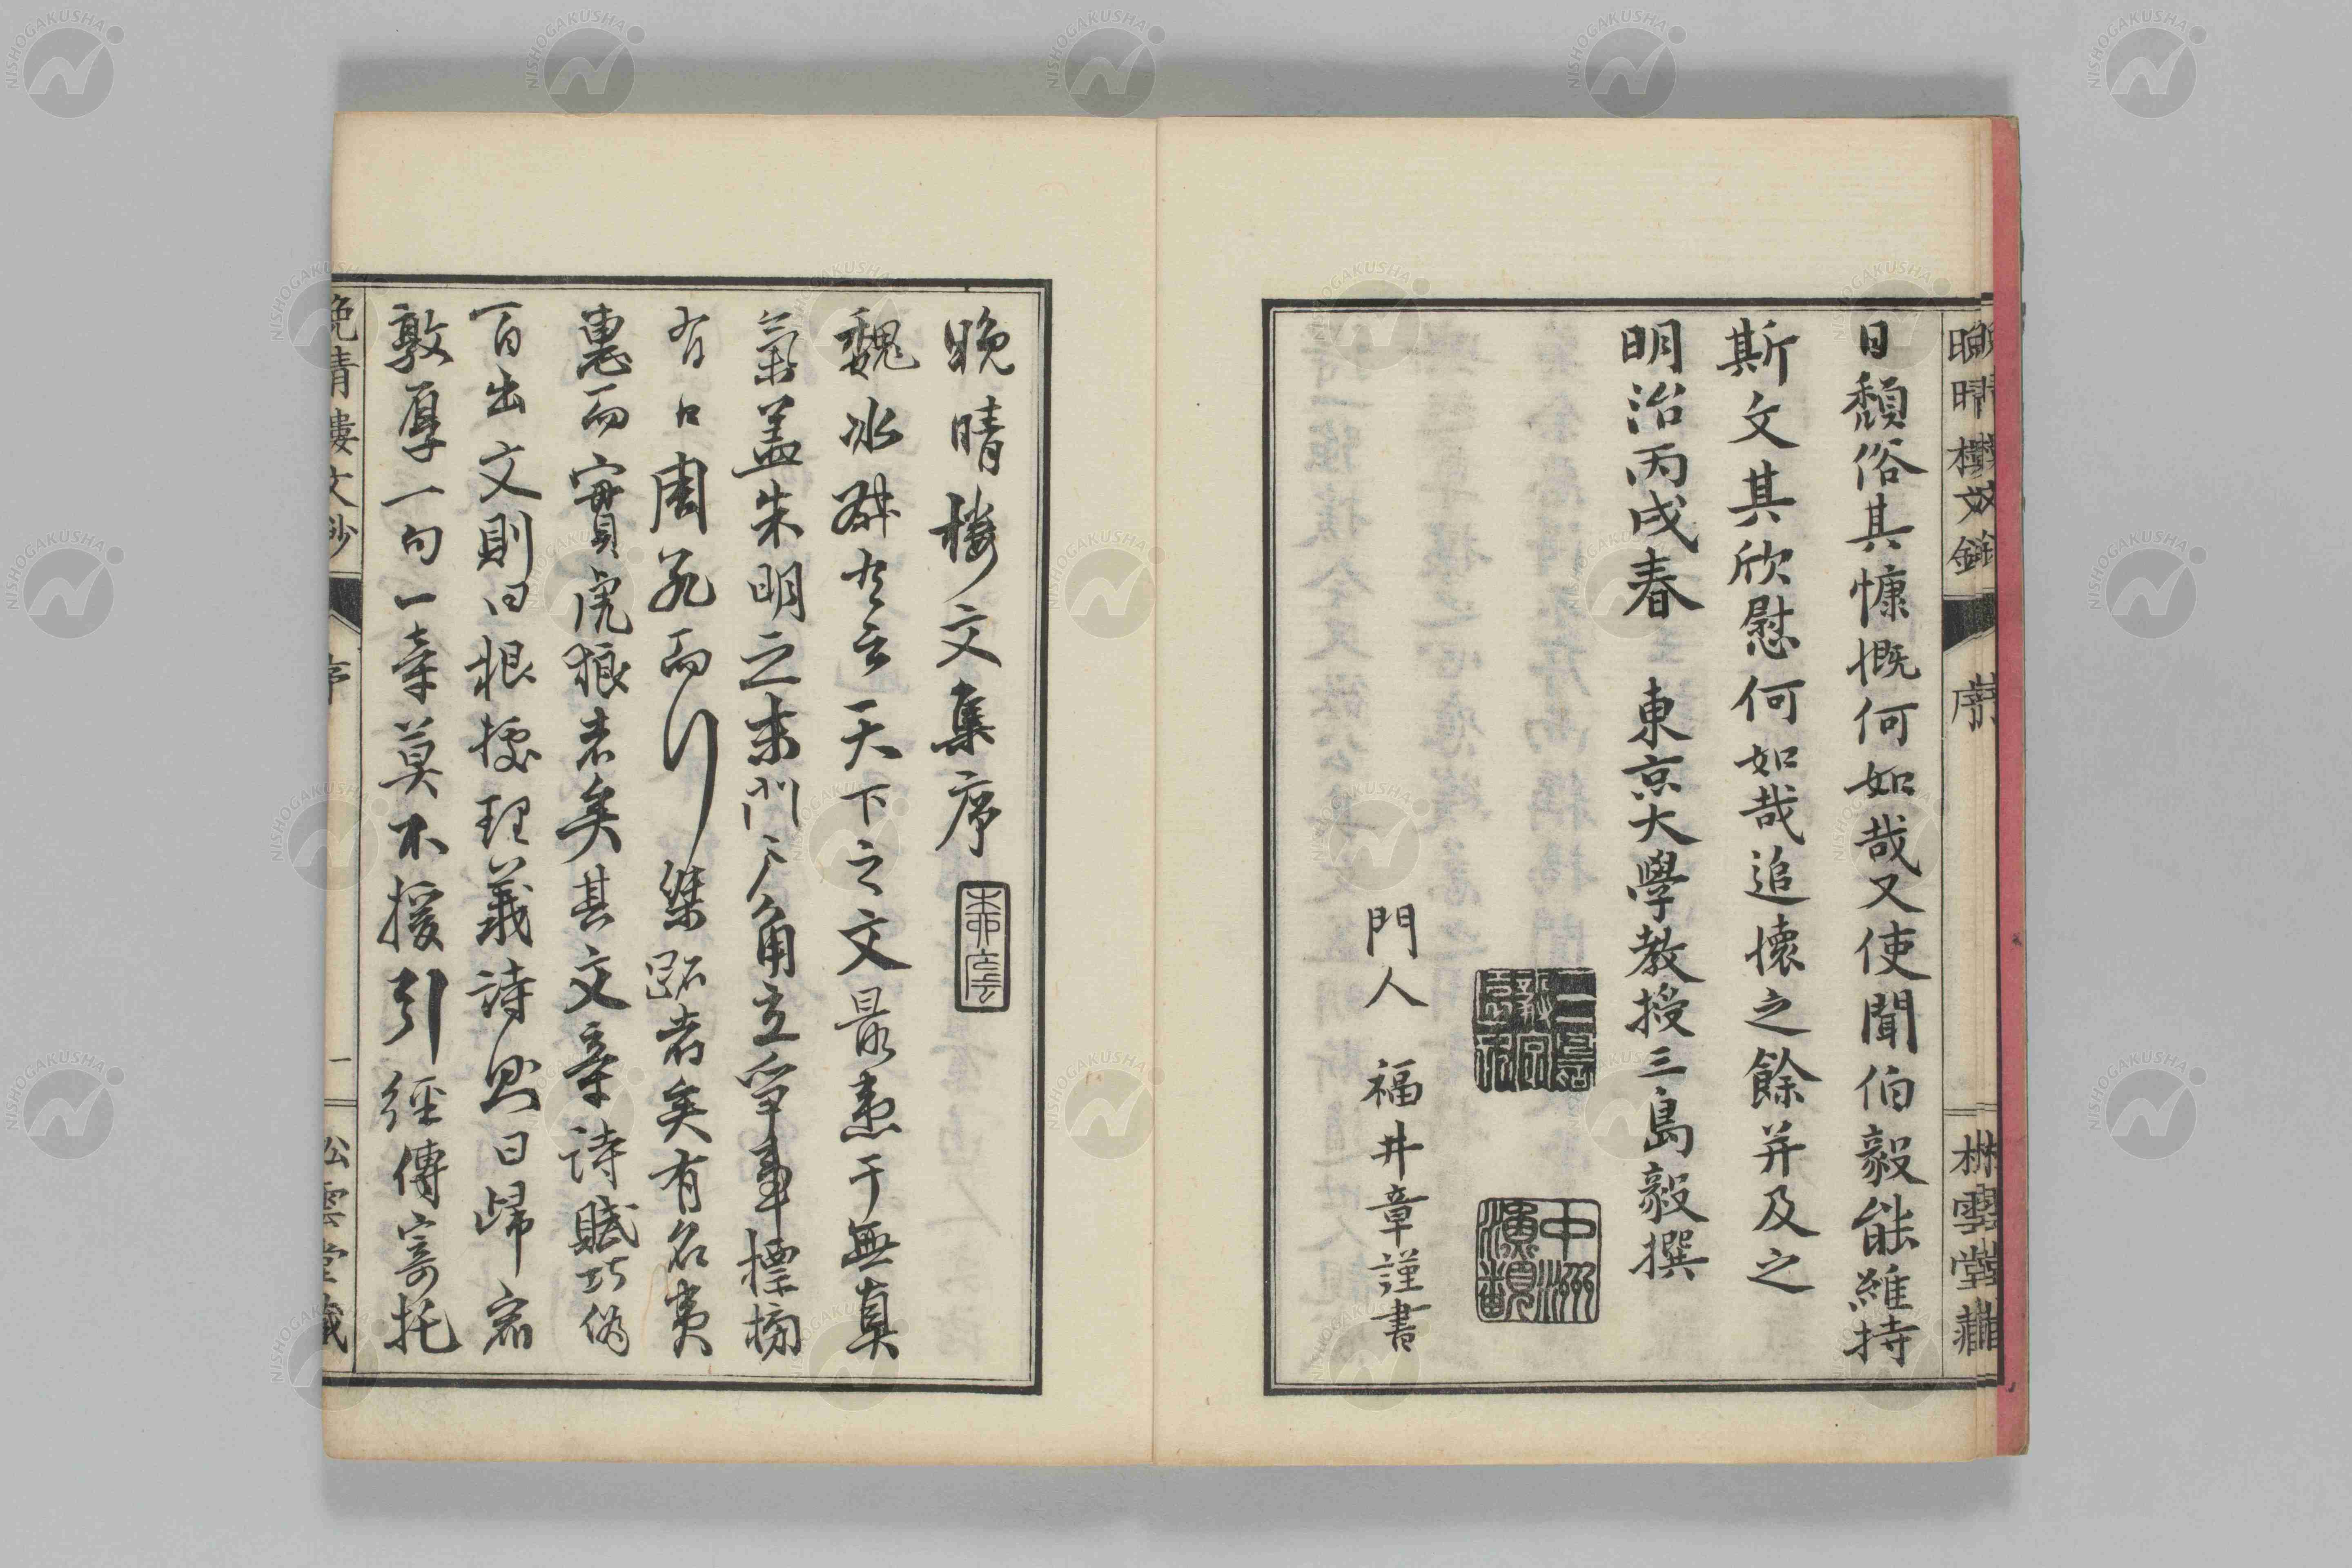 日頽俗其慷慨何如哉又使聞伯毅能維持
斯文其欣慰何如哉追懷之餘并及之
明治丙戌春 東京大學教授三島毅撰
門人 福井章謹書
晩晴樓文鈔
序
松雲堂藏
晚晴樓文集序
魏冰叔有言天下之文最患于無真
氣蓋朱明之末門戶角立爭事標榜
有口周孔而行桀跖者矣有名夷
惠而實虎狼者矣其文章詩賦巧偽
百出文則曰根據理義詩則曰歸宿
敦厚一句一章莫不援引經傳寄托
晚晴樓文鈔
序
一
松雲堂藏
NISHOGAKUSHA